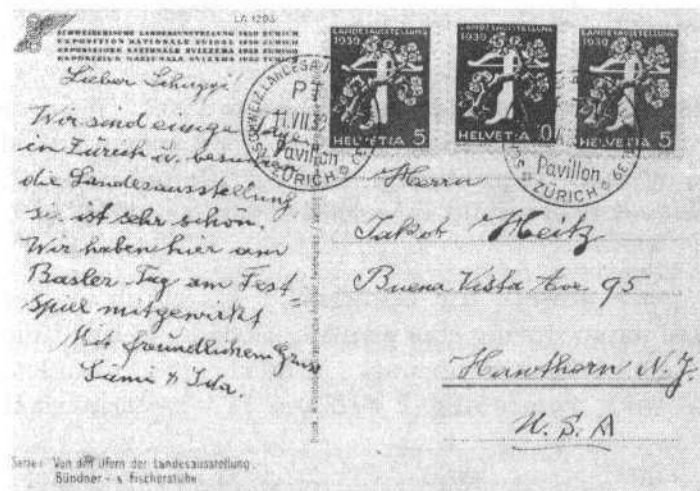 LA 1293
SCHWEIZERISCHE LANDESAUSSTELLUNG 1939 ZÜRICH
EXPOSITION NATIONALE SUISSE 1939 ZURICH
ESPOSIZIONE NAZIONALE SVIZZERA 1939 ZURIGO
EXPOSIZIUN NAZIUNALA SVIZZRA 1939
Lieber Schuppi!
Wir sind einige
in Zürich u.
die Landesausstellung
sie ist sehr schön.
Wir haben hier am
Basler Tag am Fest-
spiel mitgewirkt
Mit freundlichem Gruss
Sämi & Ida.
Serie: Von den Ufern der Landesausstellung.
Bündner- u. Fischerstube
LANDESAUSSTELLUNG
1939
HELVETIA 5
LANDESAUSSTELLUNG
1939
HELVETIA 0
LANDESAUSSTELLUNG
1939
HELVETIA 5
SCHWEIZ. LANDESA
PT
11.VII.39
Pavillon
ZÜRICH
Pavillon
ZÜRICH
Herrn
Jakob Heitz
Buena Vista Ave. 95
Hawthorn N. J.
U. S. A